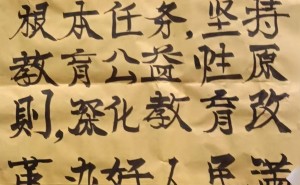 根本任务,坚持
教育公益性原
则,深化教育改
革办好人民满